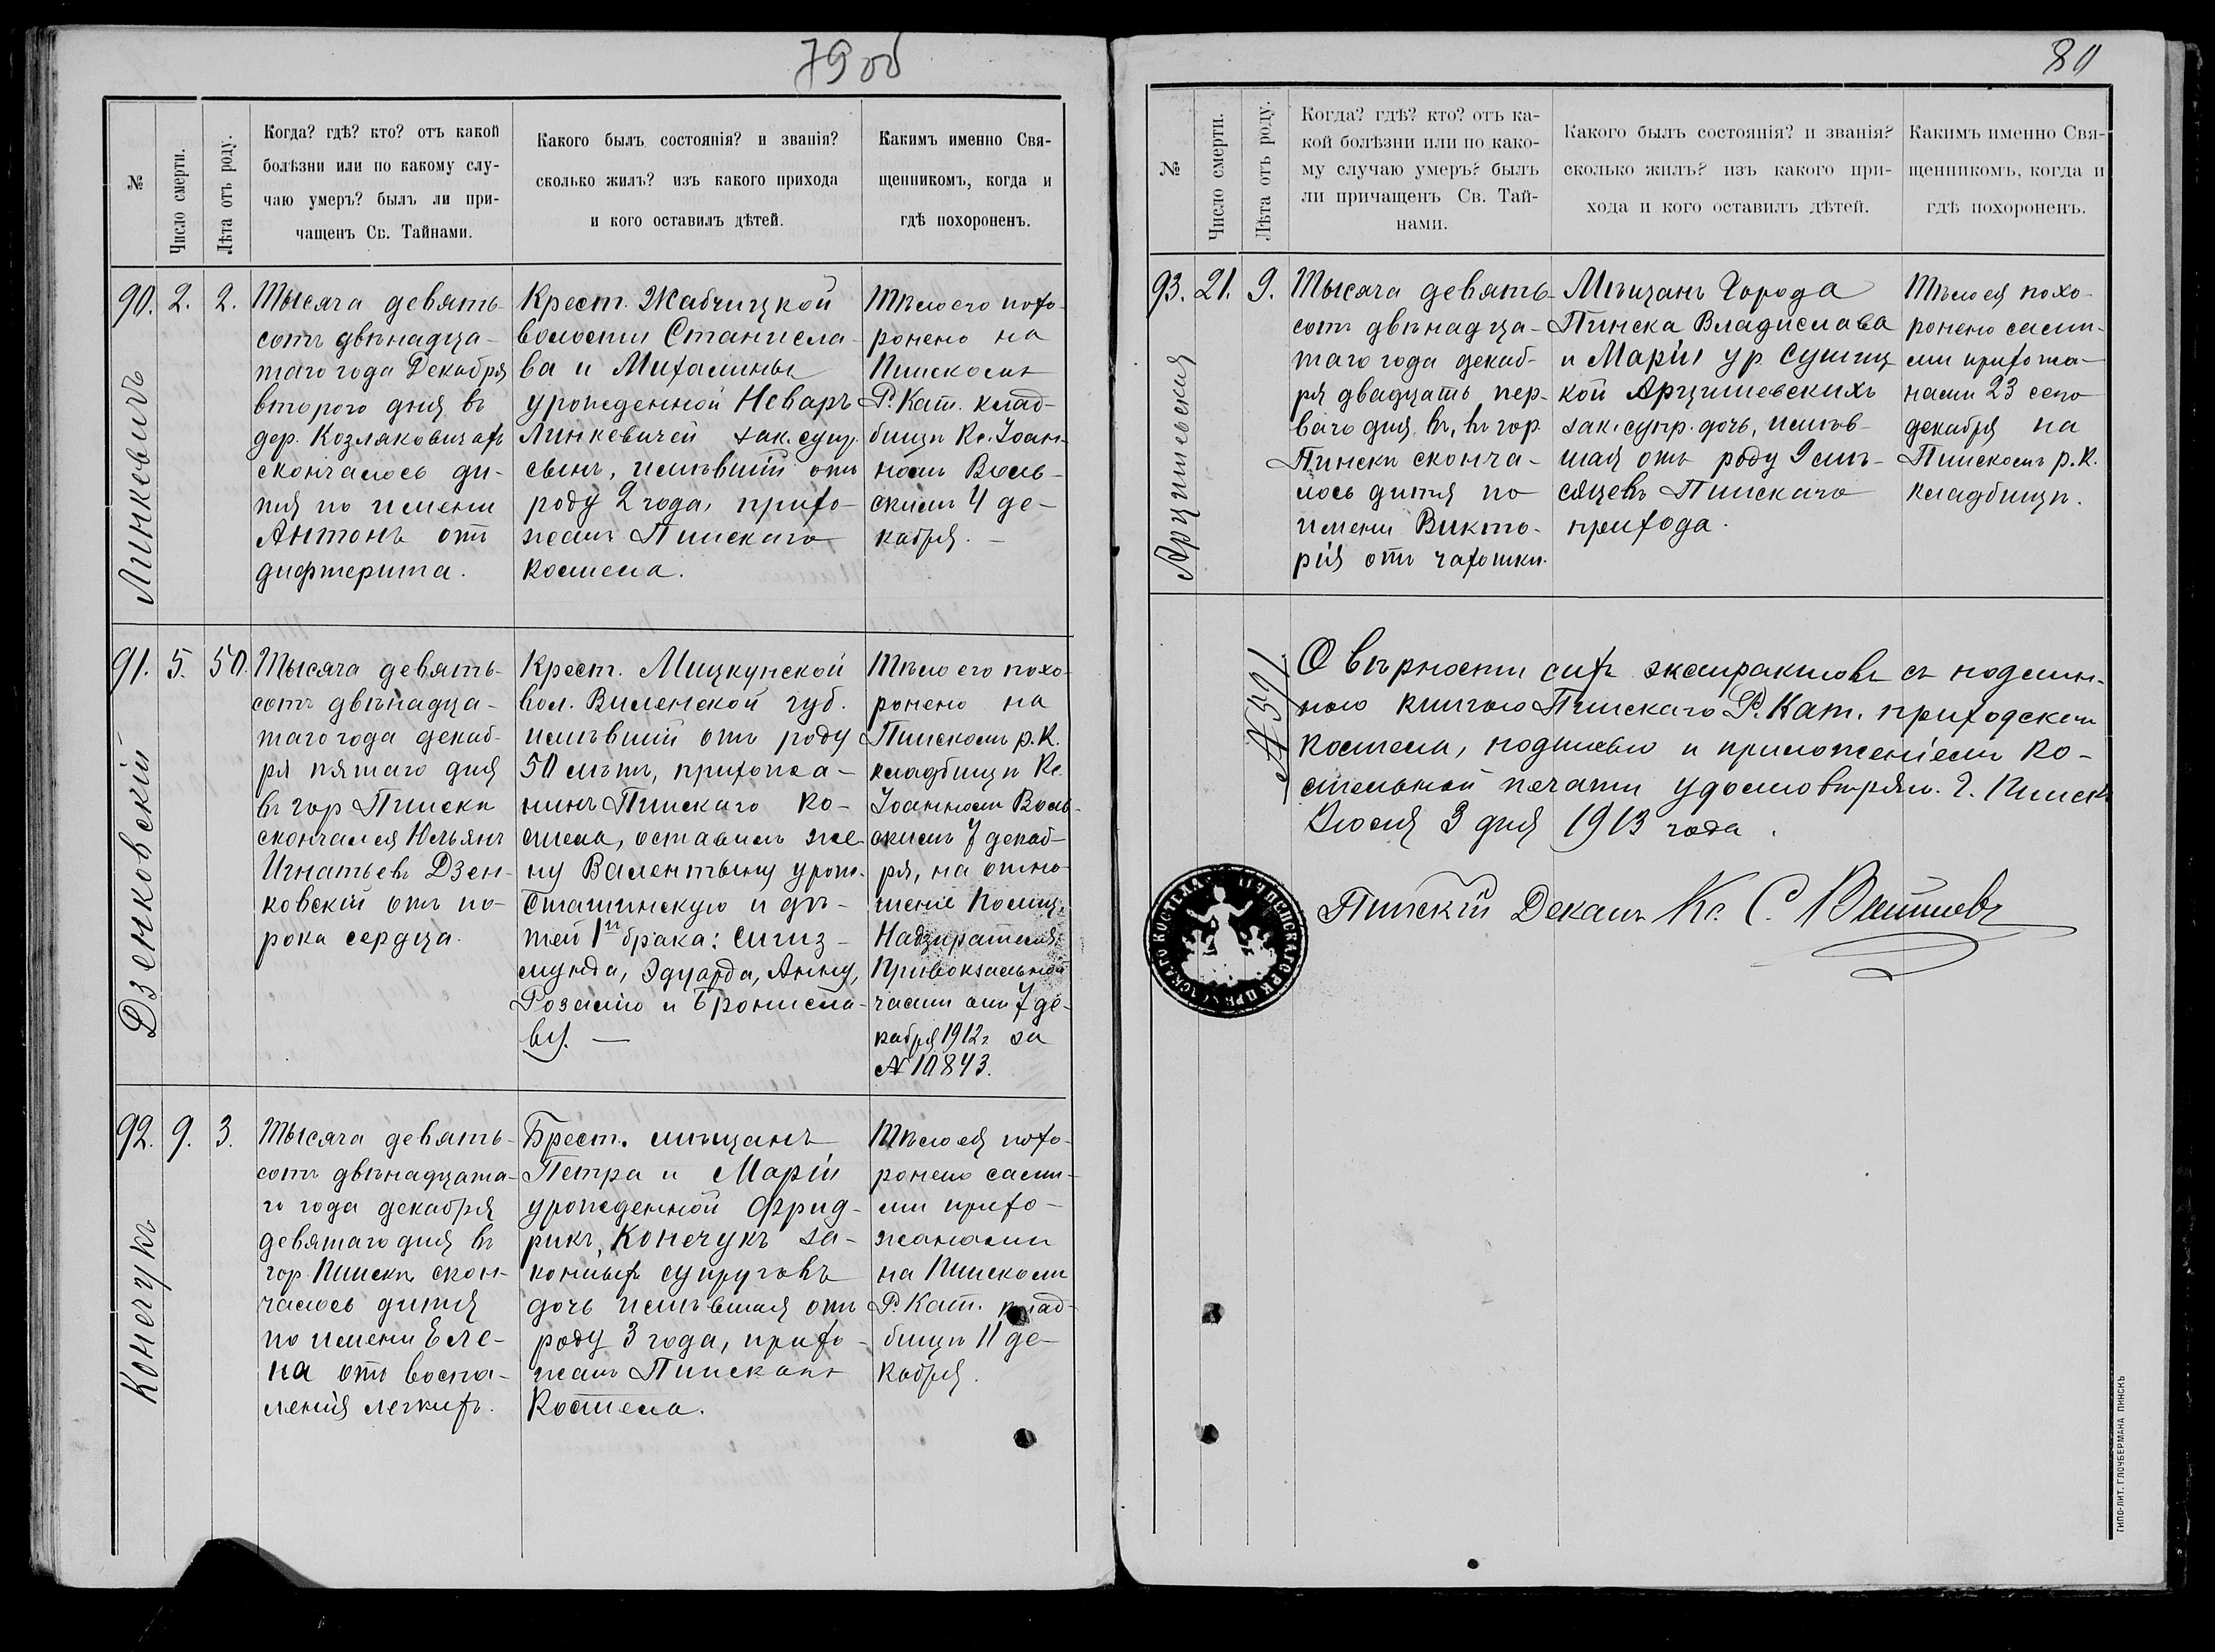 79 об
№
Число смерти.
Лѣта отъ роду.
Когда? гдѣ? кто? отъ какой
болѣзни или по какому слу-
чаю умеръ? былъ ли при-
чащенъ Св. Тайнами.
Какого былъ состоянія? и званія?
сколько жилъ? изъ какого прихода
и кого оставилъ дѣтей.
Какимъ именно Свя-
щенникомъ, когда и
гдѣ похороненъ.
90. 2. 2.
Линкевичъ
Тысяча девять-
сотъ двѣнадца-
таго года Декабря
второго дня въ
дер. Козляковичахъ
скончалось ди-
тя по имени
Антонъ отъ
дифтерита.
Крест. Жабчицкой
волости Станисла-
ва и Михалины
урожденной Неваръ
Линкевичей зак. супр.
сынъ, имѣвшій отъ
роду 2 года, прихо-
жанъ Пинскаго
костела.
Тѣло его похо-
ронено на
Пинскомъ
Р. Кат. клад-
бищѣ Кс. Іоан-
номъ Воль-
скимъ 4 де-
кабря. —
91. 5. 50.
Дзенковскій
Тысяча девять-
сотъ двѣнадца-
таго года декаб-
ря пятаго дня
въ гор Пинскѣ
скончался Юльянъ
Игнатьевъ Дзен-
ковскій отъ по-
рока сердца.
Крест. Мицкунской
вол. Виленской губ.
имѣвшій отъ роду
50 лѣтъ, прихожа-
нинъ Пинскаго ко-
стела, оставилъ же-
ну Валентыну урож.
Сташинскую и дѣ-
тей 1го брака: Сигиз-
мунда, Эдуарда, Анну,
Розалію и Бронисла-
ву. —
Тѣло его похо-
ронено на
Пинскомъ р. к.
кладбищѣ Кс.
Іоанномъ Воль-
скимъ 7 декаб-
ря, на отно-
шеніе Помощ.
Надзирателя
Привокзальной
части отъ 7 де-
кабря 1912 г. за
№ 10843.
92. 9. 3.
Конечукъ
Тысяча девять-
сотъ двѣнадцата-
го года декабря
девятаго дня въ
гор. Пинскѣ скон-
чалось дитя
по имени Еле-
на отъ воспа-
ленія легкихъ.
Брест. мѣщанъ
Петра и Маріи
урожденной Фрид-
рикъ, Конечукъ за-
конныхъ супруговъ
дочь имѣвшая отъ
роду 3 года, прихо-
жанъ Пинскаго
Костела.
Тѣло ея похо-
ронено сами-
ми прихо-
жанами
на Пинскомъ
Р. Кат. клад-
бищѣ 11 де-
кабря.
80
№
Число смерти.
Лѣта отъ роду.
Когда? гдѣ? кто? отъ ка-
кой болѣзни или по како-
му случаю умеръ? былъ
ли причащенъ Св. Тай-
нами.
Какого былъ состоянія? и званія?
сколько жилъ? изъ какого при-
хода и кого оставилъ дѣтей.
Какимъ именно Свя-
щенникомъ, когда и
гдѣ похороненъ.
93. 21. 9.
Арцишевская
Тысяча девять-
сотъ двѣнадца-
таго года декаб-
ря двадцать пер-
ваго дня въ, въ гор.
Пинскѣ сконча-
лось дитя по
имени Викто-
рія отъ чахотки.
Мѣщанъ Города
Пинска Владислава
и Маріи ур. Сушиц
кой Арцишевскихъ
зак. супр. дочь, имѣв-
шая отъ роду 9 мѣ-
сяцевъ Пинскаго
прихода.
Тѣло ея похо-
ронено сами-
ми прихожа-
нами 23 сего
декабря на
Пинскомъ р. к.
кладбищѣ.
№ 591
О вѣрности сихъ экстрактовъ съ подлин-
ною книгою Пинскаго Р. Кат. приходскаго
костела, подписью и приложеніемъ ко-
стельной печати удостовѣряю. Г. Пинскъ
Іюля 3 дня 1913 года.
Пинскій Деканъ Кс. С.
ТИПО-ЛИТ. ГЛОУБЕРМАНА ПИНСКЪ